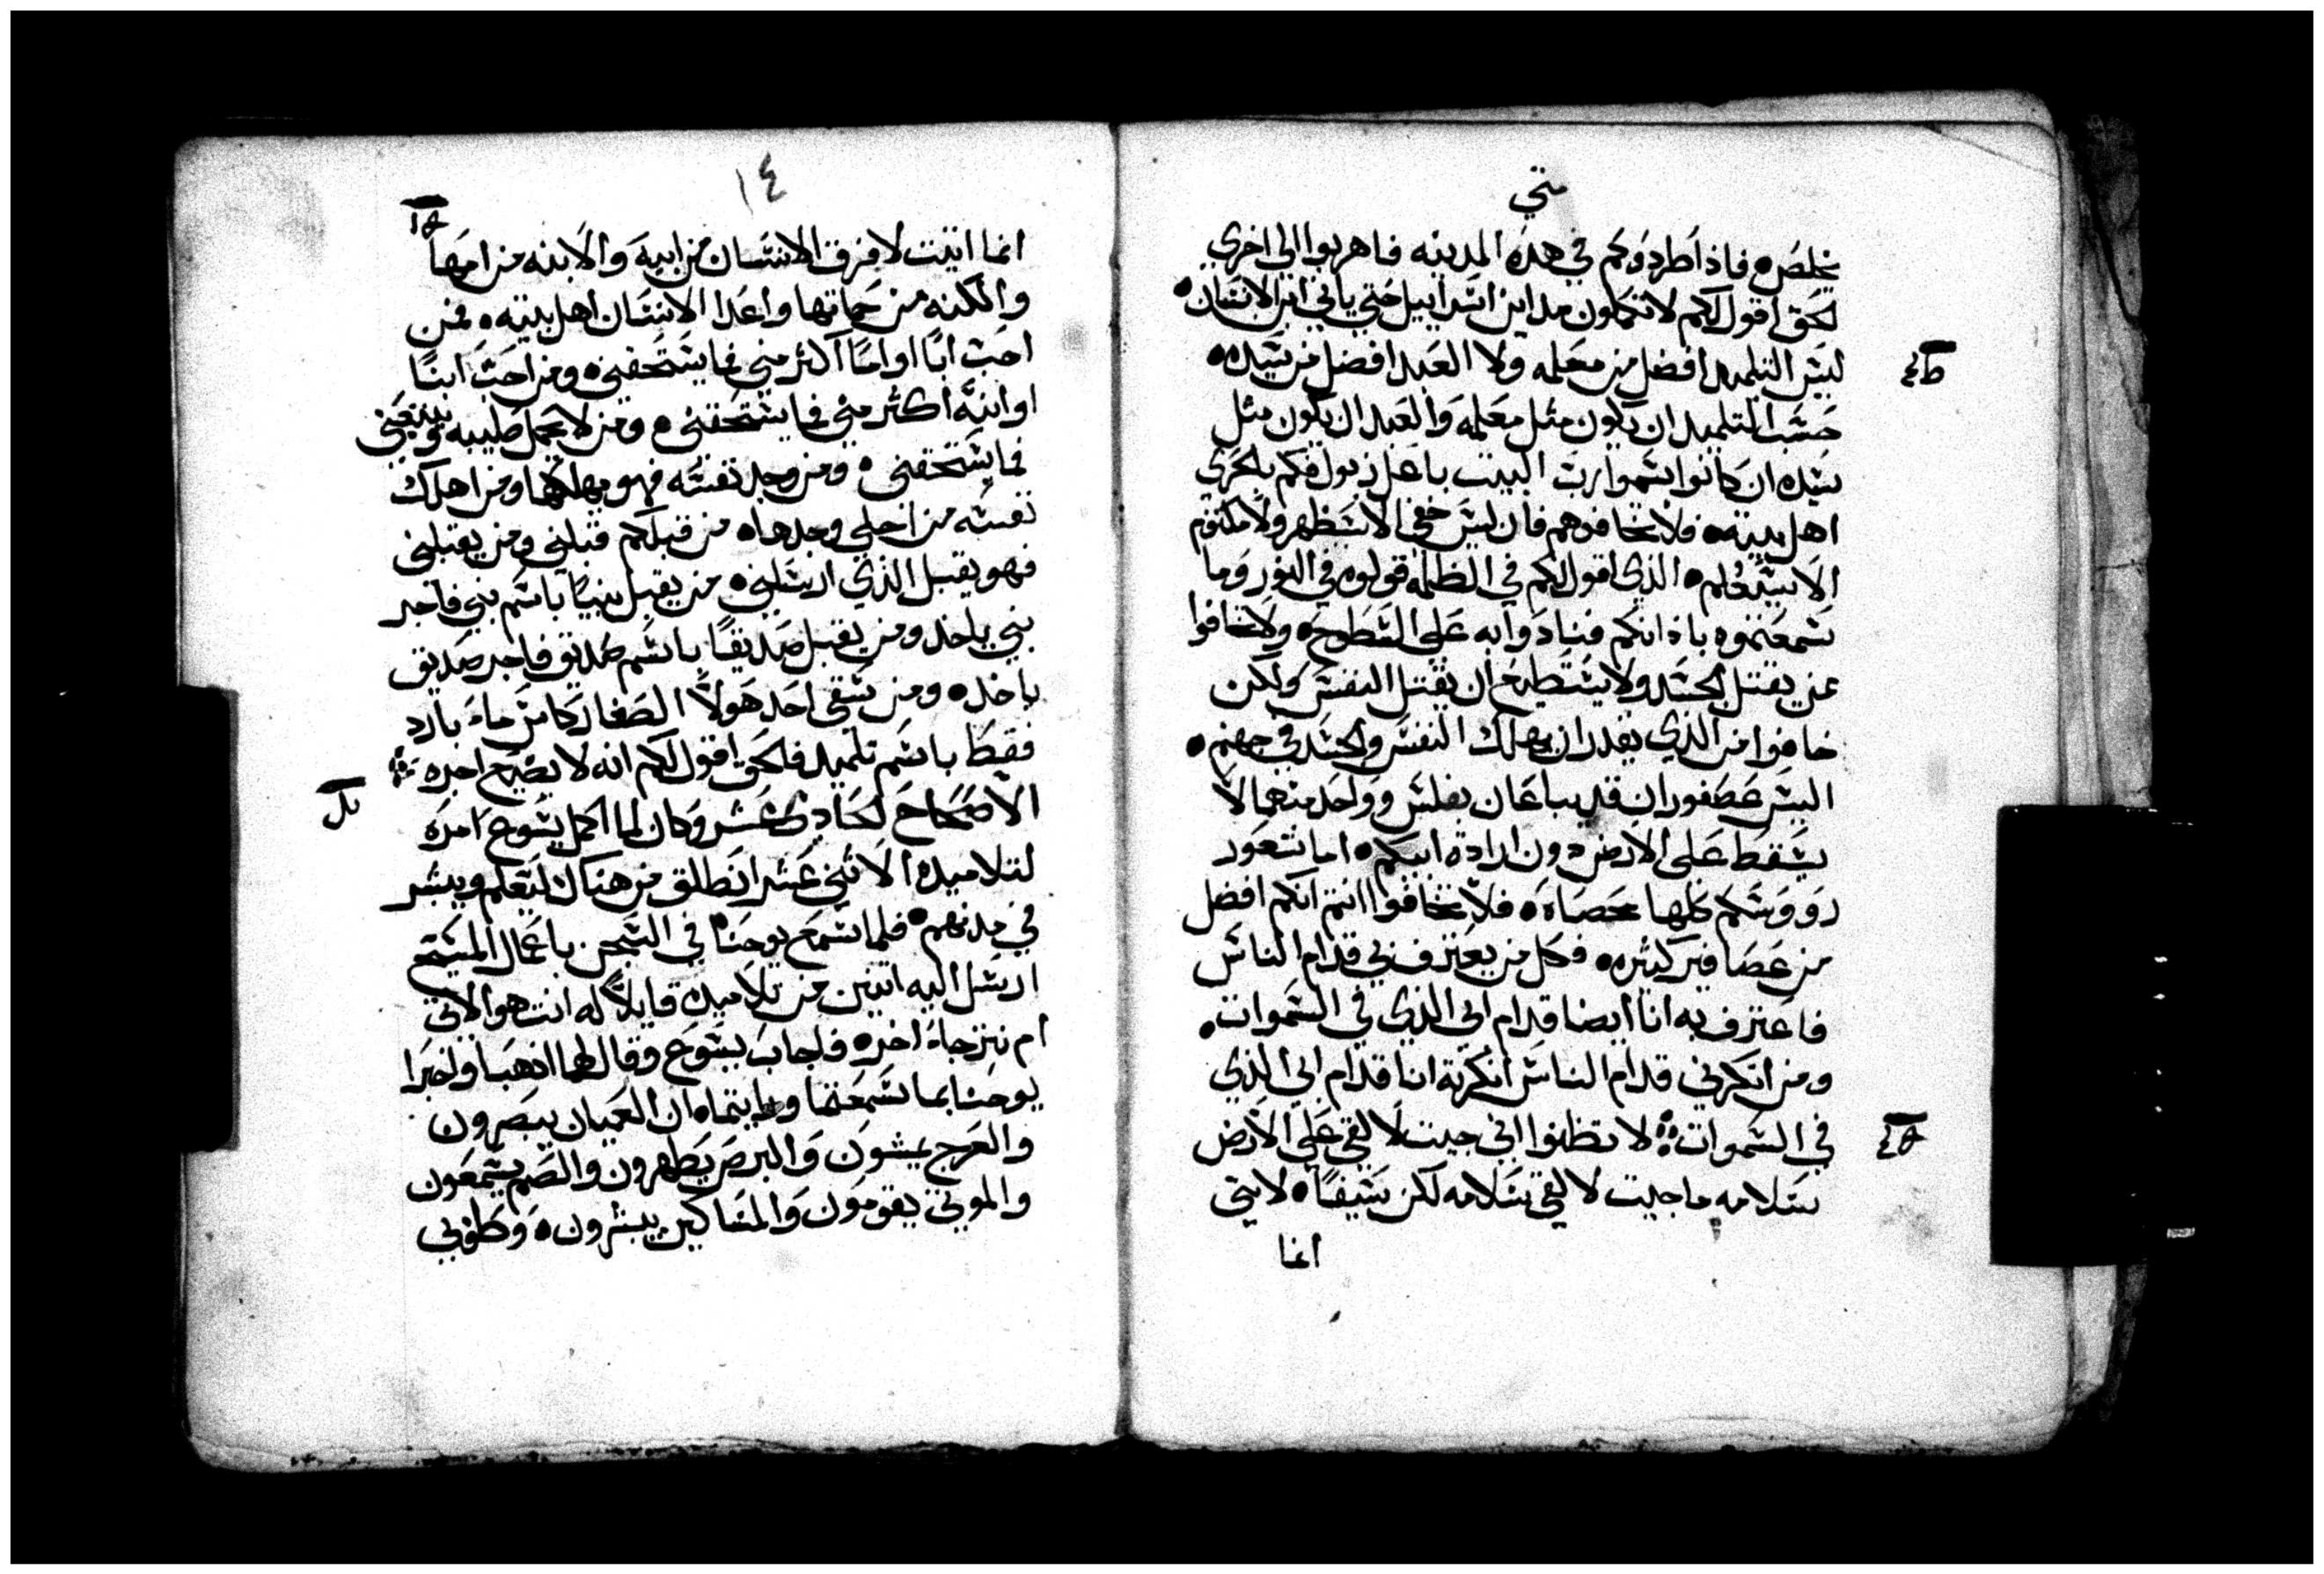 متي
يخلص ه فاذا طردوكم في هذه المدينه فاهربوا الي اخري
لحق اقول لكم لا تكملون مداين اسراييل حتي ياتي ابن الانسان ه
ليس التلميد افضل من معلمه ولا العبد افضل من سيده ه
حسب التلميد ان يكون مثل معلمه والعبد ان يكون مثل
سيده ان كانوا سموا رب البيت باعلزبول فكم بالحري
اهل بيته ه فلا تخافوهم فان ليس خفي الا سيظهر ولا مكتوم
الا سيعلم ه الذي اقول لكم في الظلمه قولوه في النور وما
سمعتموه باذانكم فنادوا به علي السطوح ه ولا تخافوا
ممن يقتل الجسد ولا يستطيع ان يقتل النفس ولكن
خافوا من الذي يقدر ان يهلك النفس والجسد في جهنم ه
اليس عصفوران قد يباعان بفلس وواحد منهما لا
يسقط علي الارض دون ارادة ابيكم ه اما شعور
رووسكم كلها محصاه ه فلا تخافوا انتم انكم افضل
من عصافير كثيره ه فكل من يعترف بي قدام الناس
فاعترف به انا ايضا قدام ابي الذي في السموات ه
ومن انكرني قدام الناس انكرته انا قدام ابي الذي
في السموات لا تظنوا اني جيت لالقي علي الارض
سلامه ما جيت لالقي سلامه لكن سيفا ه لاني
انما
١٤
انما اتيت لافرق الانسان من ابيه والابنه من امها
والكنه من حماتها واعدا الانسان اهل بيته ه فمن
احب ابا او اما اكثر مني فما يستحقني ه ومن احب ابنا
او ابنه اكثر مني فما يستحقني ه ومن لا يحمل صليبه ويتبعني
فما يستحقني ه ومن وجد نفسه فهو يهلكها ومن اهلك
نفسه من اجلي وجدها ه من قبلكم قبلني ومن يقبلني
فهو يقبل الذي ارسلني ه من يقبل نبيا باسم نبي فاجر
نبي ياخد ومن يقبل صديقا باسم صديق فاجر صديق
ياخد ه ومن سقي احد هولا الصغار كاس ماء بارد
فقط باسم تلميد فالحق اقول لكم انه لا يضيع اجره
الاصحاح الحادي عشر وكان لما اكمل يسوع امره
لتلاميده الاثني عشر انطلق من هناك ليعلم ويبشر
في مدنهم ه فلما سمع يوحنا في السجن باعمال المسيح
ارسل اليه اتنين من تلاميده قايلا له انت هو الاتي
ام نترجاء اخر ه فاجاب يسوع وقال لهما اذهبا واخبرا
يوحنا بما سمعتما ورايتما ه ان العميان يبصرون
والعرج يمشون والبرص يطهرون والصم يسمعون
والموتي يقومون والمساكين يبشرون ه وطوبي